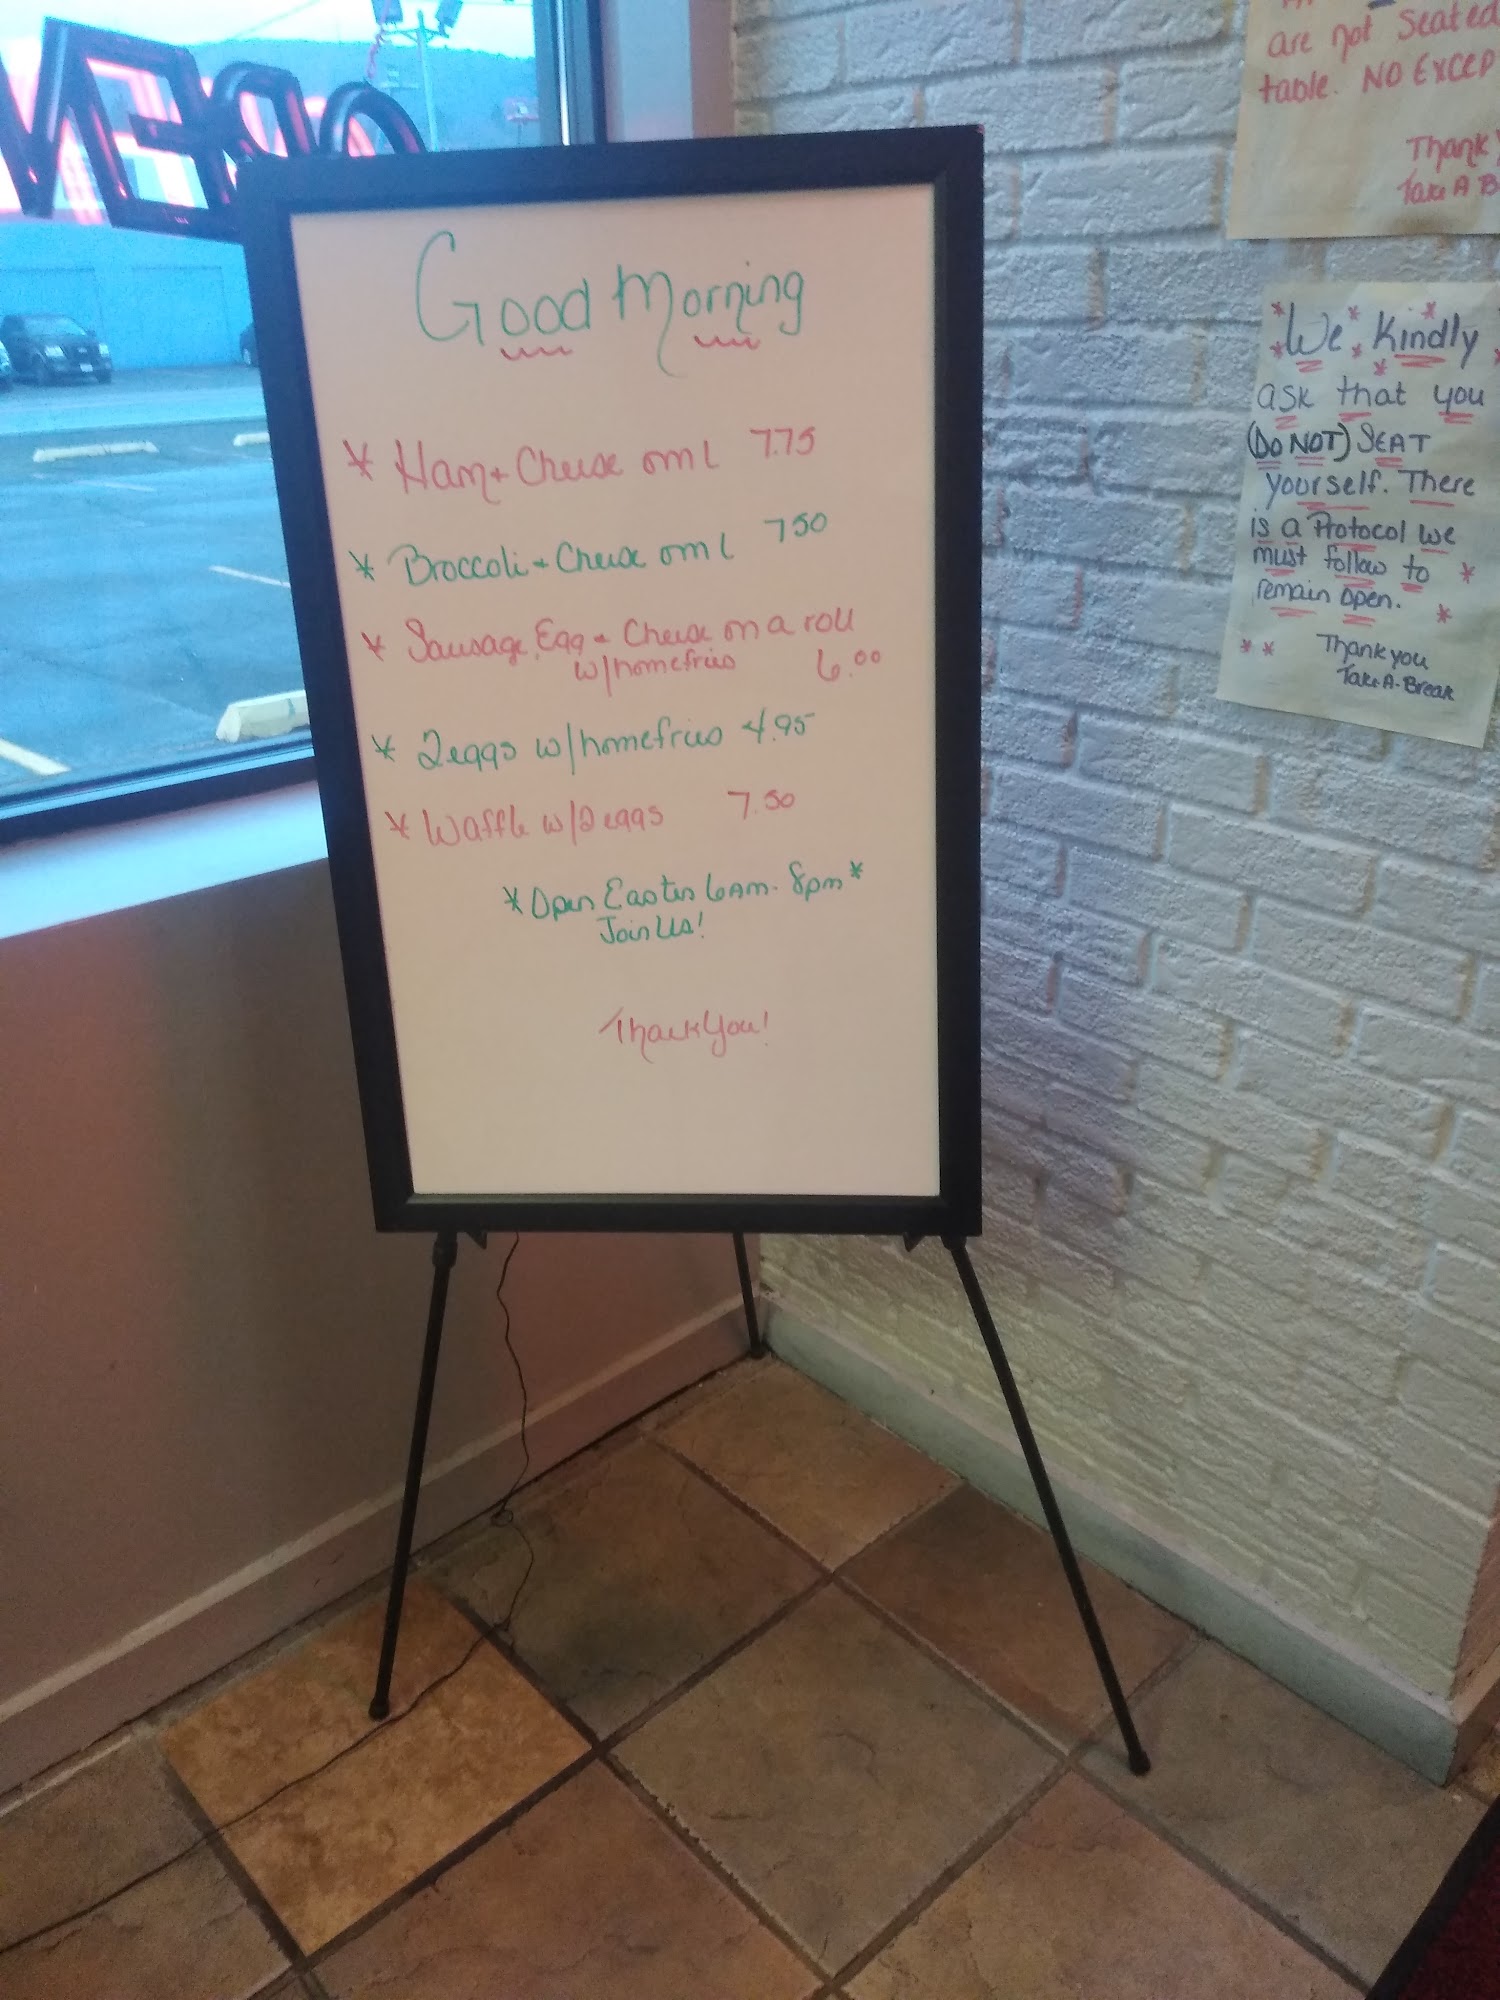 OPEN
Good Morning
* Ham + Cheese oml 7.75
* Broccoli + Cheese oml 7 50
* Sausage, Egg + Cheese on a roll
w/homefries 6.00
* 2 eggs w/homefries 4.95
* Waffle w/2 eggs 7.50
* Open Easter 6am - 8pm *
Join Us!
Thank You!
are not seated
table. NO EXCEP
Thank Y
Take A B
We Kindly
ask that you
(DO NOT) SEAT
yourself. There
is a Protocol we
must follow to
remain open.
Thank you
Take-A-Break